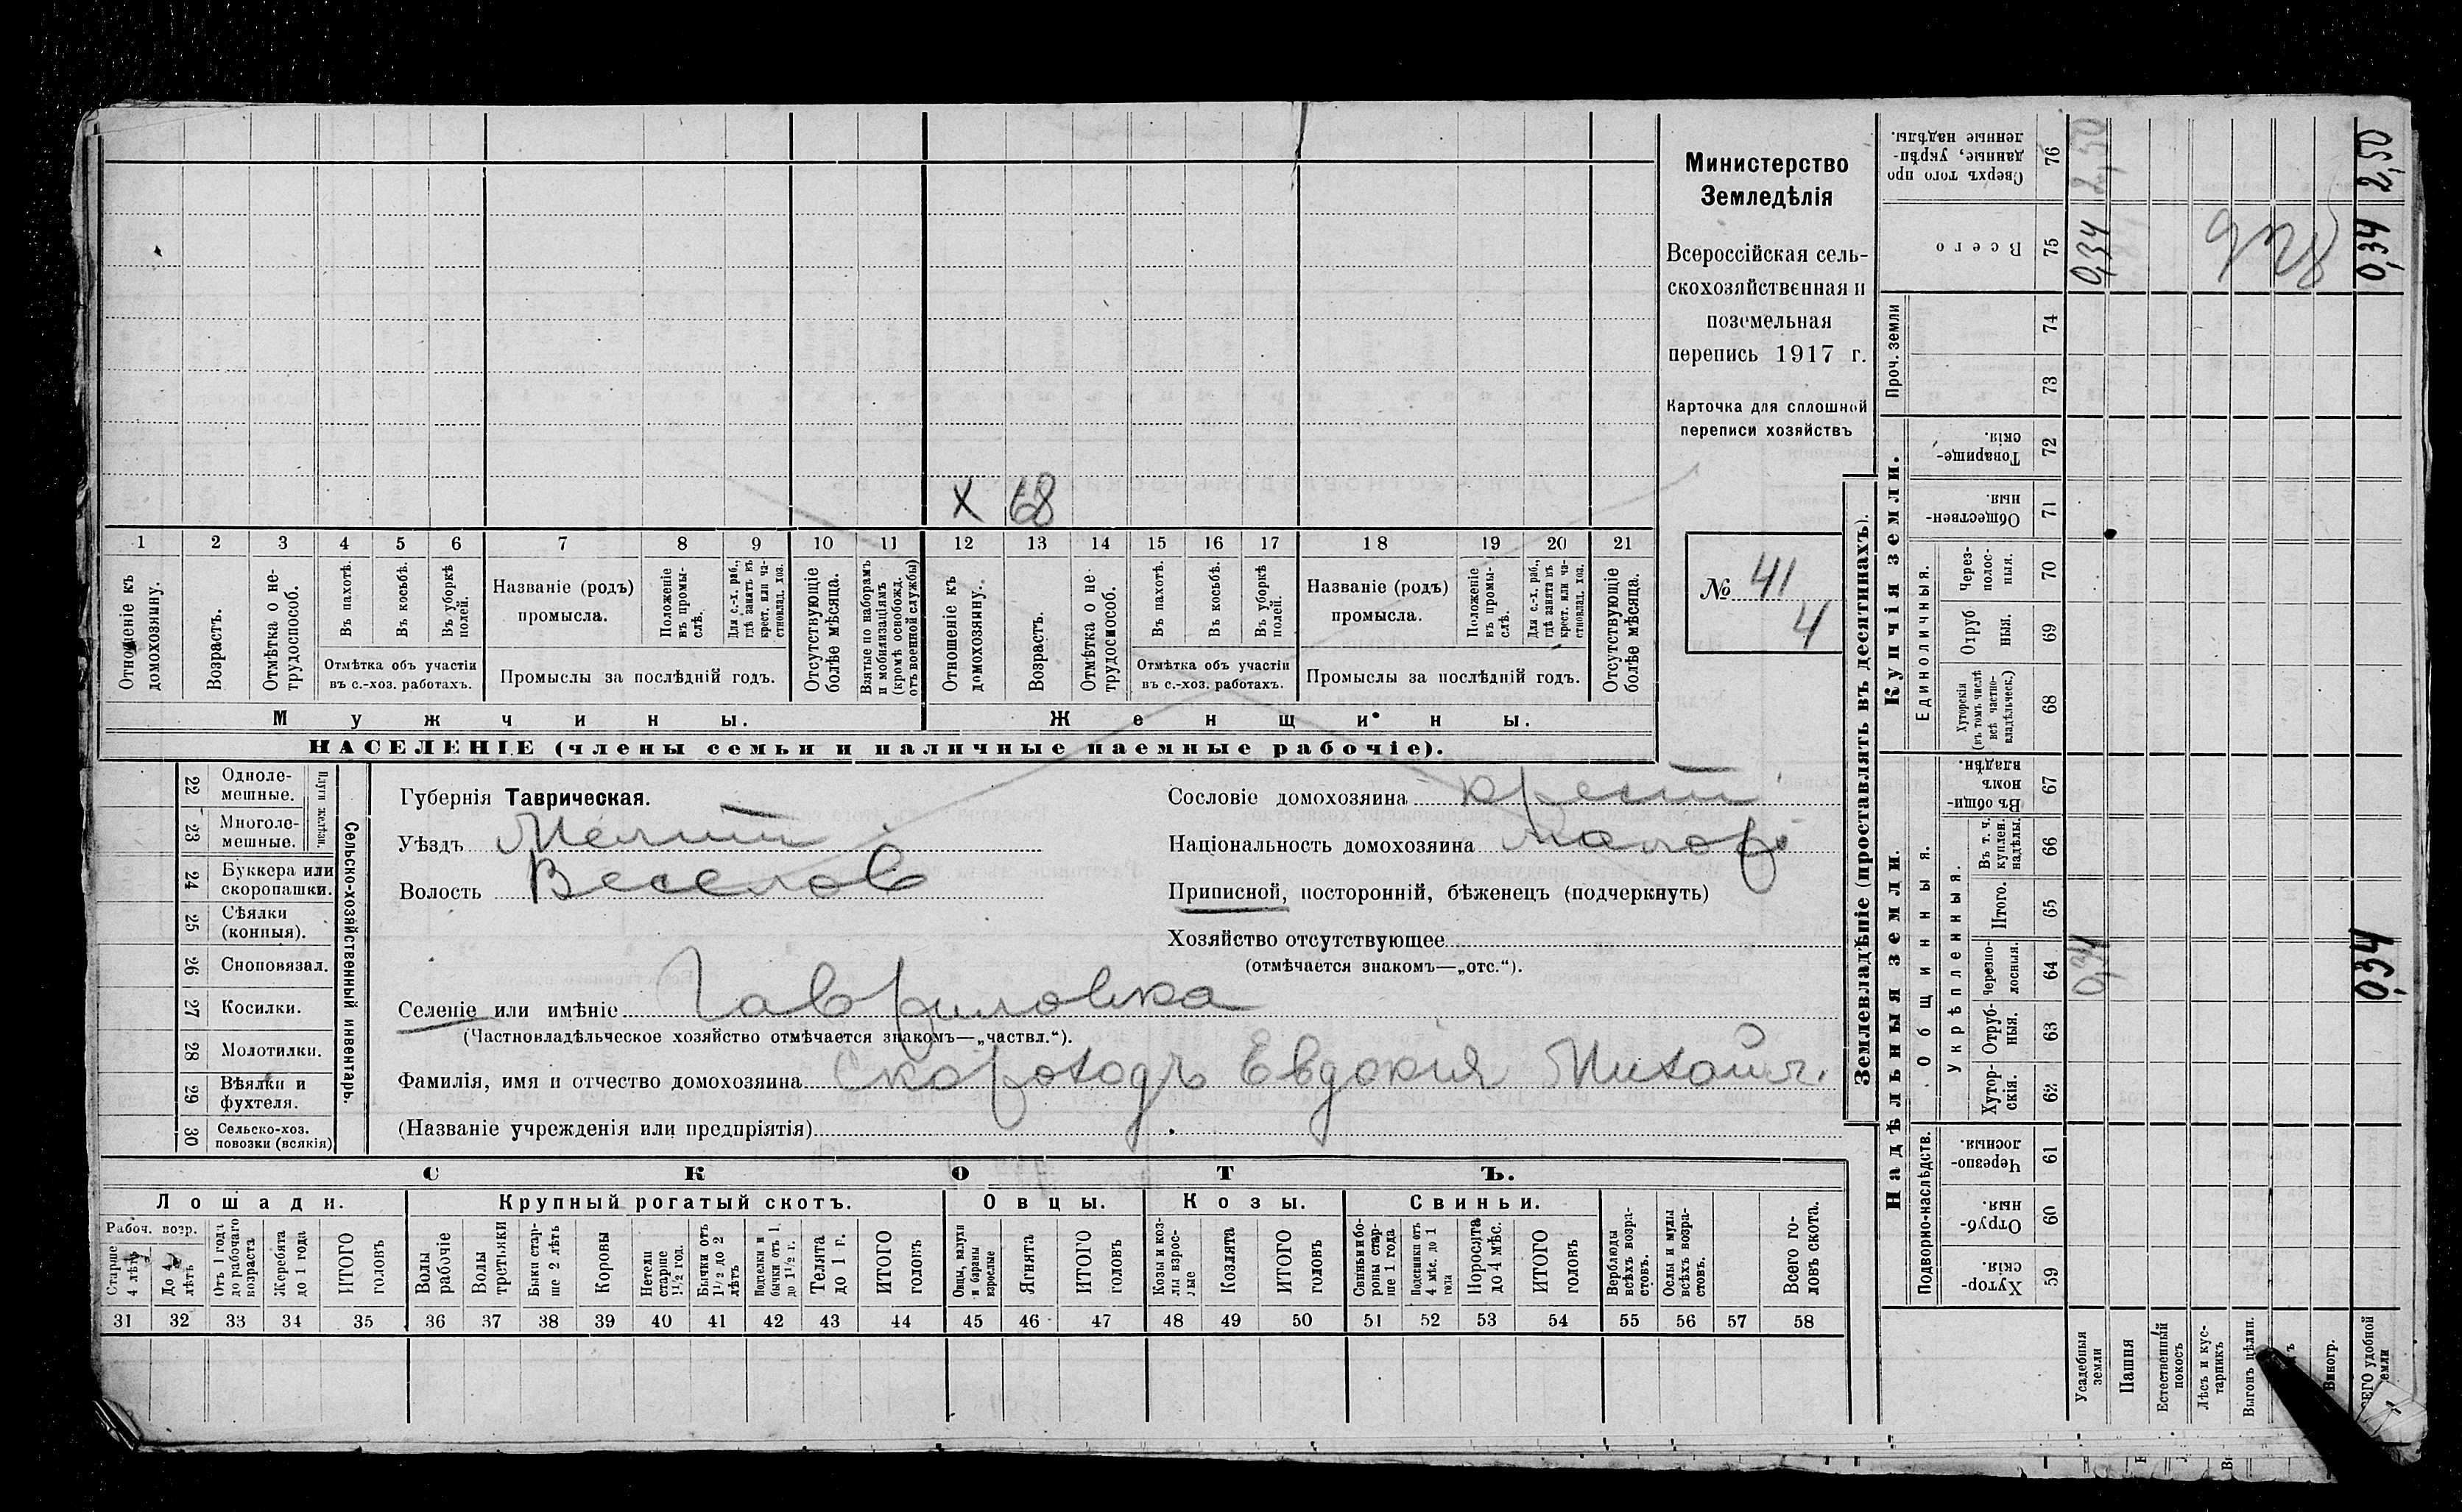 Министерство
Земледѣлія
Всероссійская сель-
скохозяйственная и
поземельная
перепись 1917 г.
Карточка для сплошной
переписи хозяйствъ
№ 41
4
х 68
1 2 3 4 5 6 7 8 9 10 11 12 13 14 15 16 17 18 19 20 21
Отношеніе къ домохозяину.
Возрастъ.
Отмѣтка о не-трудоспособ.
Въ пахотѣ.
Въ косьбѣ.
Въ уборкѣ полей.
Отмѣтка объ участіи
въ с.-хоз. работахъ.
Названіе (родъ)
промысла.
Положеніе въ промы-слѣ.
Для с.-х. раб., гдѣ занятъ въ крест. или ча-стновлад. хоз.
Промыслы за послѣдній годъ.
Отсутствующіе болѣе мѣсяца.
Взятые по наборамъ и мобилизаціямъ (кромѣ освобожд. отъ военной службы)
Отношеніе къ домохозяину.
Возрастъ.
Отмѣтка о не-трудоспособ.
Въ пахотѣ.
Въ косьбѣ.
Въ уборкѣ полей.
Отмѣтка объ участіи
въ с.-хоз. работахъ.
Названіе (родъ)
промысла.
Положеніе въ промы-слѣ.
Для с.-х. раб., гдѣ занята въ крест. или ча-стновлад. хоз.
Промыслы за послѣдній годъ.
Отсутствующіе болѣе мѣсяца.
Мужчины.
Женщины.
НАСЕЛЕНІЕ (члены семьи и наличные наемные рабочіе).
Сельско-хозяйственный инвентарь.
Плуги желѣзн.
22 Одноле-мешные.
23 Многоле-мешные.
24 Буккера или скоропашки.
25 Сѣялки (конныя).
26 Сноповязал.
27 Косилки.
28 Молотилки.
29 Вѣялки и фухтеля.
30 Сельско-хоз. повозки (всякія)
Губернія Таврическая.
Уѣздъ Мелит
Волость Веселов
Сословіе домохозяина крест
Національность домохозяина малор
Приписной, посторонній, бѣженецъ (подчеркнуть)
Хозяйство отсутствующее
(отмѣчается знакомъ—„отс.“).
Селеніе или имѣніе Гавриловка
(Частновладѣльческое хозяйство отмѣчается знакомъ—„частвл.“).
Фамилія, имя и отчество домохозяина Скороходъ Евдокия Михайл.
(Названіе учрежденія или предпріятія)
СКОТЪ.
Лошади.
Крупный рогатый скотъ.
Овцы.
Козы.
Свиньи.
Рабоч. возр.
Старше 4 лѣтъ
До 4 лѣтъ
Отъ 1 года до рабочаго возраста
Жеребята до 1 года
ИТОГО головъ
Волы рабочіе
Волы третьяки
Быки стар-ше 2 лѣтъ
Коровы
Нетели старше 1½ год.
Бычки отъ 1½ до 2 лѣтъ
Подтелки и бычки отъ 1 до 1½ г.
Телята до 1 г.
ИТОГО головъ
Овцы, валухи и бараны взрослые
Ягнята
ИТОГО головъ
Козы и коз-лы взрос-лые
Козлята
ИТОГО головъ
Свиньи и бо-ровы стар-ше 1 года
Подсвинки отъ 4 мѣс. до 1 года
Поросята до 4 мѣс.
ИТОГО головъ
Верблюды всѣхъ возра-стовъ.
Ослы и мулы всѣхъ возра-стовъ.
Всего го-ловъ скота.
31 32 33 34 35 36 37 38 39 40 41 42 43 44 45 46 47 48 49 50 51 52 53 54 55 56 57 58
Землевладѣніе (проставлять въ десятинахъ).
Надѣльныя земли.
Купчія земли.
Проч. земли
Подворно-наслѣдств.
Общинныя.
Укрѣпленныя.
Единоличныя.
Сверхъ того про-данные, укрѣп-ленные надѣлы. 76 2,50 2,50
Всего 75 0,34 0,34
74
73
Товарище-скія. 72
Обществен-ныя. 71
Через-полос-ныя. 70
Отруб ныя. 69
Хуторскія (въ томъ числѣ всѣ частно-владѣльческ.) 68
Въ общин-номъ владѣн. 67
Въ т. ч. куплен. надѣлы. 66
Итого. 65
Черезпо-лосныя. 64 0,34 0,34
Отруб-ныя. 63
Хутор-скія. 62
Черезпо-лосныя. 61
Отруб-ныя. 60
Хутор-скія. 59
Усадебныя земли
Пашня
Естественный покосъ
Лѣсъ и кус-тарникъ
Выгонъ цѣлин.
Виногр.